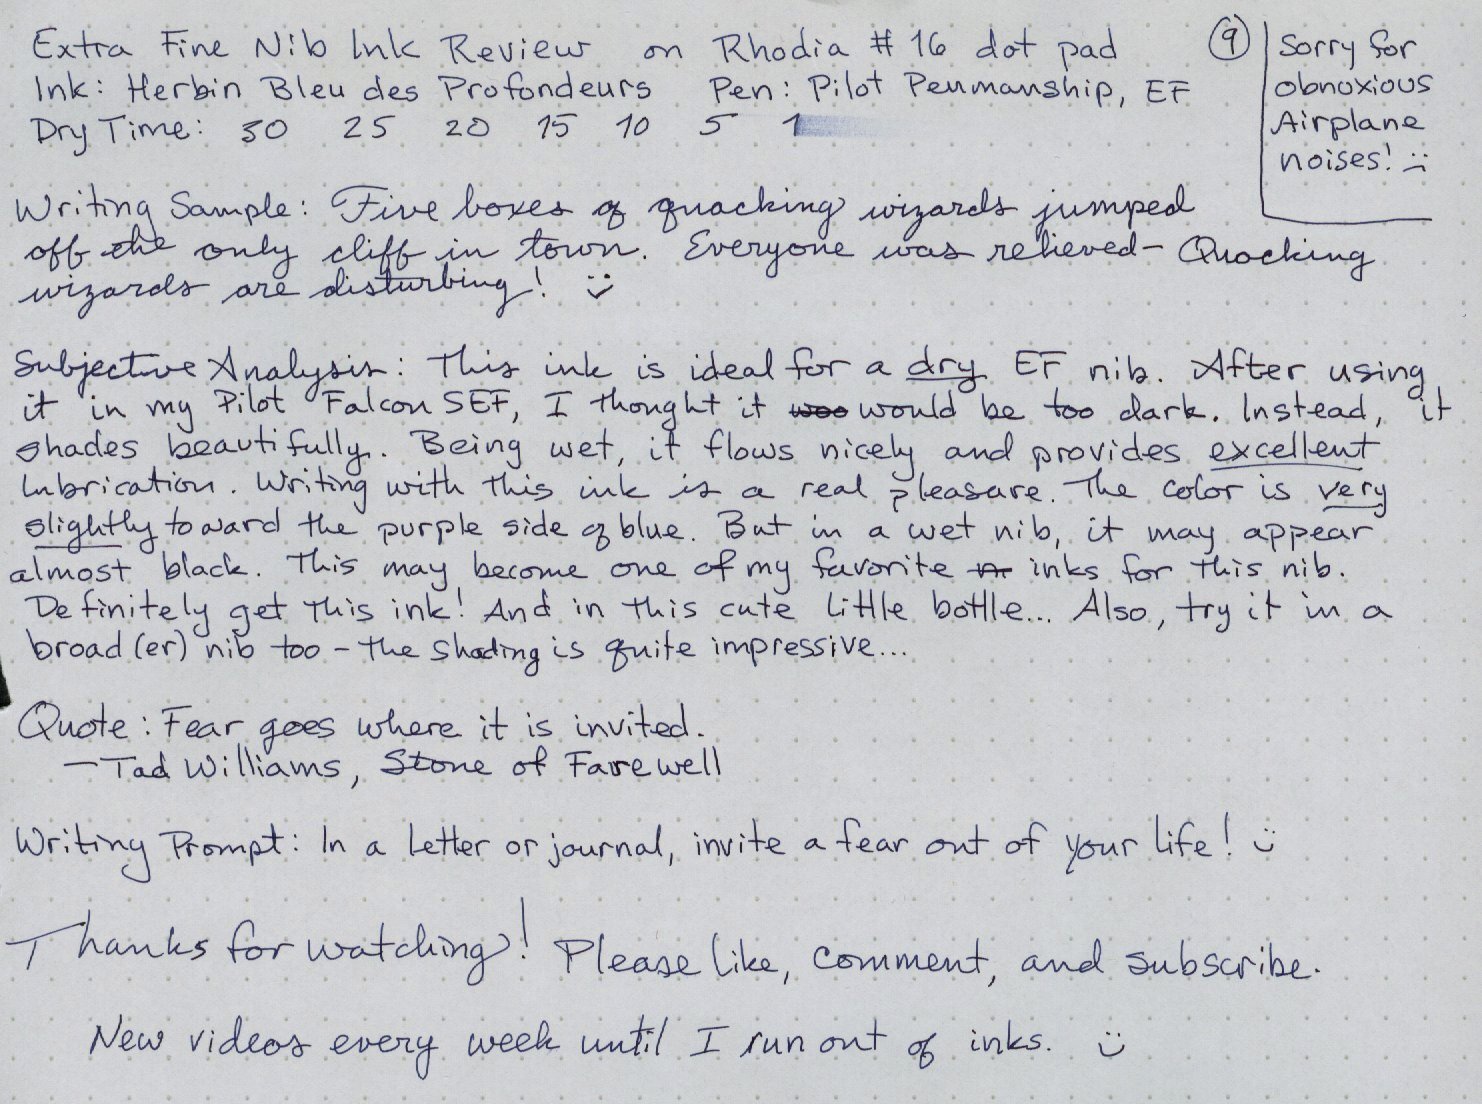 Extra Fine Nib Ink Review on Rhodia #16 dot pad
Ink: Herbin Bleu des Profondeurs Pen: Pilot Penmanship, EF
Dry Time: 30 25 20 15 10 5 1
9
Sorry for
obnoxious
Airplane
noises! :(
Writing Sample: Five boxes of quacking wizards jumped
off the only cliff in town. Everyone was relieved - Quacking
wizards are disturbing! :)
Subjective Analysis: This ink is ideal for a dry EF nib. After using
it in my Pilot Falcon SEF, I thought it woo would be too dark. Instead, it
shades beautifully. Being wet, it flows nicely and provides excellent
lubrication. Writing with this ink is a real pleasure. The color is very
slightly toward the purple side of blue. But in a wet nib, it may appear
almost black. This may become one of my favorite inks for this nib.
Definitely get this ink! And in this cute little bottle... Also, try it in a
broad(er) nib too - the shading is quite impressive...
Quote: Fear goes where it is invited.
- Tad Williams, Stone of Farewell
Writing Prompt: In a letter or journal, invite a fear out of your life! :)
Thanks for watching! Please like, comment, and subscribe.
New videos every week until I run out of inks. :)